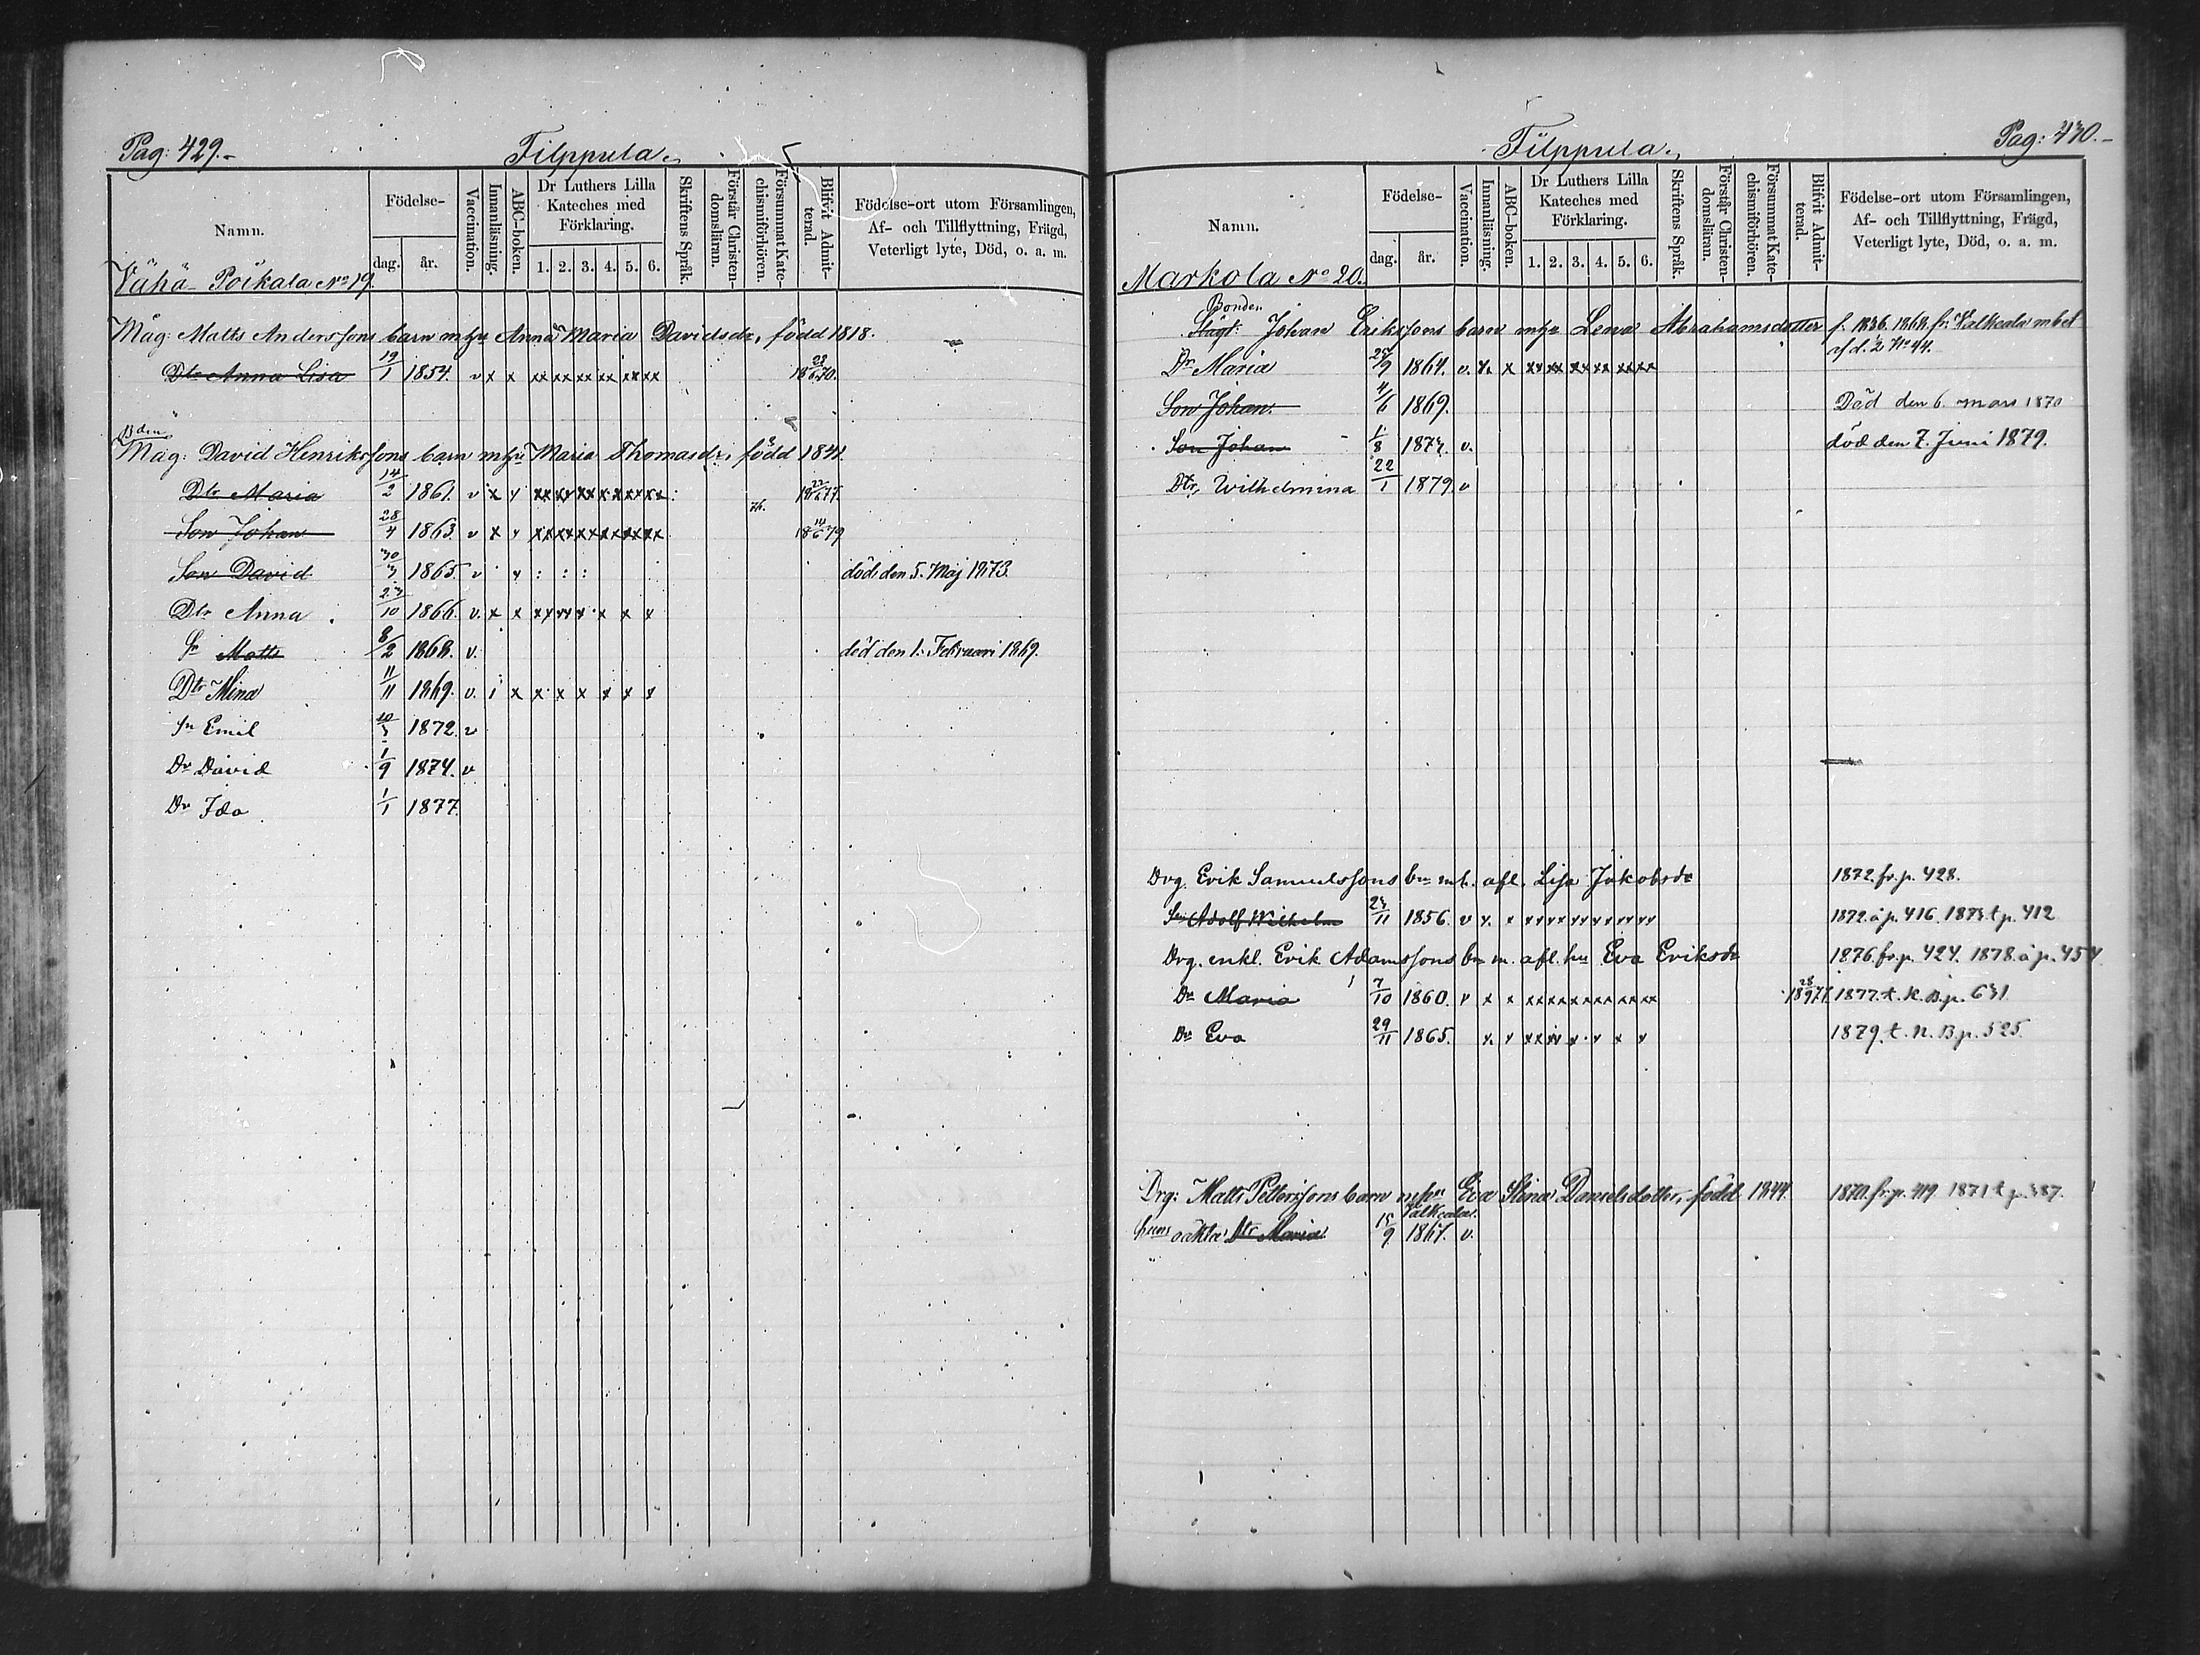 Pag: 429.
Filppula.
Namn.
Födelse-
dag.
år.
Vaccination.
Innanläsning.
ABC-boken.
Dr Luthers Lilla
Kateches med
Förklaring.
1. 2. 3. 4. 5. 6.
Skriftens Språk.
Förstår Christen-
domsläran.
Försummat Kate-
chismiförhören.
Blifvit Admit-
terad.
Födelse-ort utom Församlingen,
Af- och Tillflyttning, Frägd,
Veterligt lyte, Död, o. a. m.
Vähä-Poikala No 19.
Måg: Matts Anderssons barn m hu Anna Maria Davidsdr, född 1818.
Dtr Anna Lisa 19/1 1854. v x x xx xx xx xx xx xx
Måg: David Henrikssons barn m hu Maria Thomasdr, född 1841.
Dtr Maria 14/2 1861. v x x xx xx xx xx xx xx
Son Johan 28/4 1863. v x x xx xx xx xx xx xx
Son David 1865. v död den 5. Maj 1873.
Dtr Anna 23/10 1866. v. x x
Sn Matts 8/2 1868. v. död den 1. Februari 1869.
Dtr Mina 11/11 1869. v. i x x x x x x x
Sn Emil 1872. v
David 1/9 1874. v
Dr Ida 1/1 1877.
Pag: 430.
Filppula.
Namn.
Födelse-
dag.
år.
Vaccination.
Innanläsning.
ABC-boken.
Dr Luthers Lilla
Kateches med
Förklaring.
1. 2. 3. 4. 5. 6.
Skriftens Språk.
Förstår Christen-
domsläran.
Försummat Kate-
chismiförhören.
Blifvit Admit-
terad.
Födelse-ort utom Församlingen,
Af- och Tillflyttning, Frägd,
Veterligt lyte, Död, o. a. m.
Markola No 20.
Bonden
Johan Erikssons barn m hu Lena Abrahamsdotter f. 1836. 1868. fr. Valkeala m bet
af d. No 44.
Dr Maria 1864. v. x. x xx xx xx xx xx xx
Son Johan. 4/6 1869. Död den 6. mars 1870
Son Johan 1/8 1874. v. död den 7. Juni 1879.
Dtr, Wilhelmina 22/1 1879 v
Drg. Erik Samuelssons bn m. afl. Lisa Jakobsdr 1872. fr. p. 428.
Sn Adolf Wilhelm 23/11 1856. v x. x xx xx xx xx xx xx 1872. å p. 416. 1873. t. p. 412
Drg. enkl. Erik Adamssons bn m. afl. hu Eva Eriksdr 1876. fr. p. 424. 1878. å p. 454
Dr Maria 7/10 1860. v x x xx xx xx xx xx xx 1877. t. K. B. p. 631
Dr Eva 29/11 1865. x. x 1879. t. N. B. p. 525.
Drg: Matts Petterssons barn m hu Eva Stina Danielsdotter, född 1844. 1870. fr. p. 419. 1871 t. p. 387.
Valkeala.
hans oäkta Dtr Maria 15/9 1867. v.